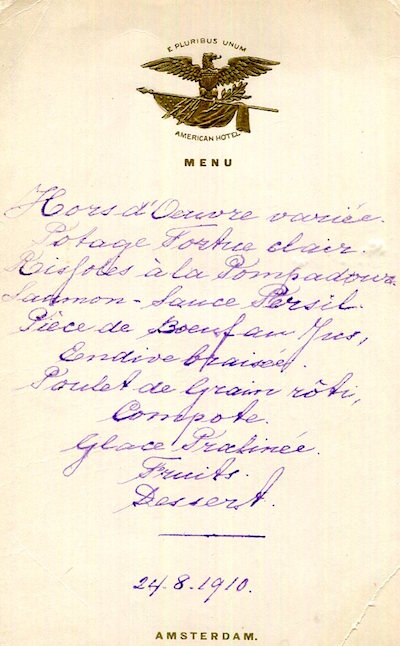 E PLURIBUS UNUM
AMERICAN HOTEL
MENU
Hors d'Oeuvre variée.
Potage Tortue clair.
Rissoles à la Pompadour.
Saumon - Sauce Persil.
Pièce de Boeuf au Jus,
Endive braisée.
Poulet de Grain rôti,
Compote.
Glace Pralinée.
Fruits.
Dessert.
24.8.1910.
AMSTERDAM.